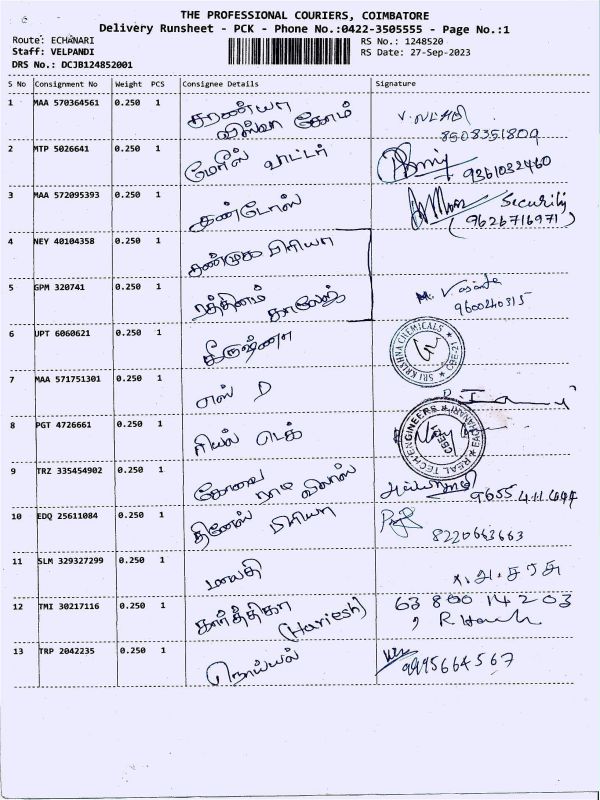 THE PROFESSIONAL COURIERS, COIMBATORE
Delivery Runsheet - PCK - Phone No.:0422-3505555 - Page No.:1
Route: ECHANARI
RS No.: 1248520
Staff: VELPANDI
RS Date: 27-Sep-2023
DRS No.: DCJB124852001
S No Consignment No Weight PCS Consignee Details Signature
1 MAA 570364561 0.250 1 சரண்யா
விஸ்வா கோம்
8508351809
2 MTP 5026641 0.250 1 மேரிஸ் வாட்டர் 9361032460
3 MAA 572095393 0.250 1 Security
(9626716971)
4 NEY 40104358 0.250 1 சண்முக பிரியா
5 GPM 320741 0.250 1 ரத்தினம் காலேஜ்
9600240315
6 UPT 6060621 0.250 1 கிருஷ்ணா SRI KRISHNA CHEMICALS
7 MAA 571751301 0.250 1 எஸ் D
8 PGT 4726661 0.250 1 ரியல் டெக் REAL TECH ENGINEERS
9 TRZ 335454902 0.250 1 கோவை நாடி விலாஸ்
10 EDQ 25611084 0.250 1 தினேஸ் பிரியா
8220663663
11 SLM 329327299 0.250 1 மாலதி
12 TMI 30217116 0.250 1 கார்த்திகா (Hariesh) 63 800 14 203
13 TRP 2042235 0.250 1 நொய்யல் 9995664567